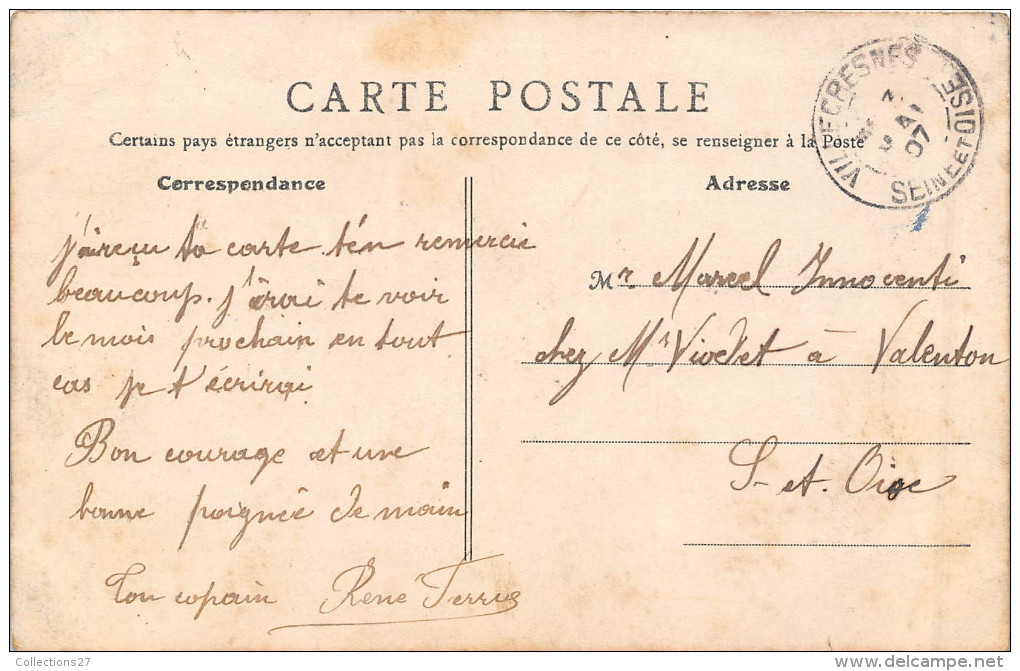 CARTE POSTALE
Certains pays étrangers n'acceptent pas la correspondance de ce côté, se renseigner à la Poste
Correspondance
j'ai reçu ta carte t'en remercie
beaucoup. j'irai te voir
le mois prochain en tout
cas je t'écrirai
Bon courage et une
bonne poignée de main
Ton copain René Ferrus
Adresse
Mr. Marcel Innocenti
chez Mr Viodet à Valenton
S-et-Oise
VILLECRESNES
MAI
07
SEINE ET OISE
Collections27
delcampe.net